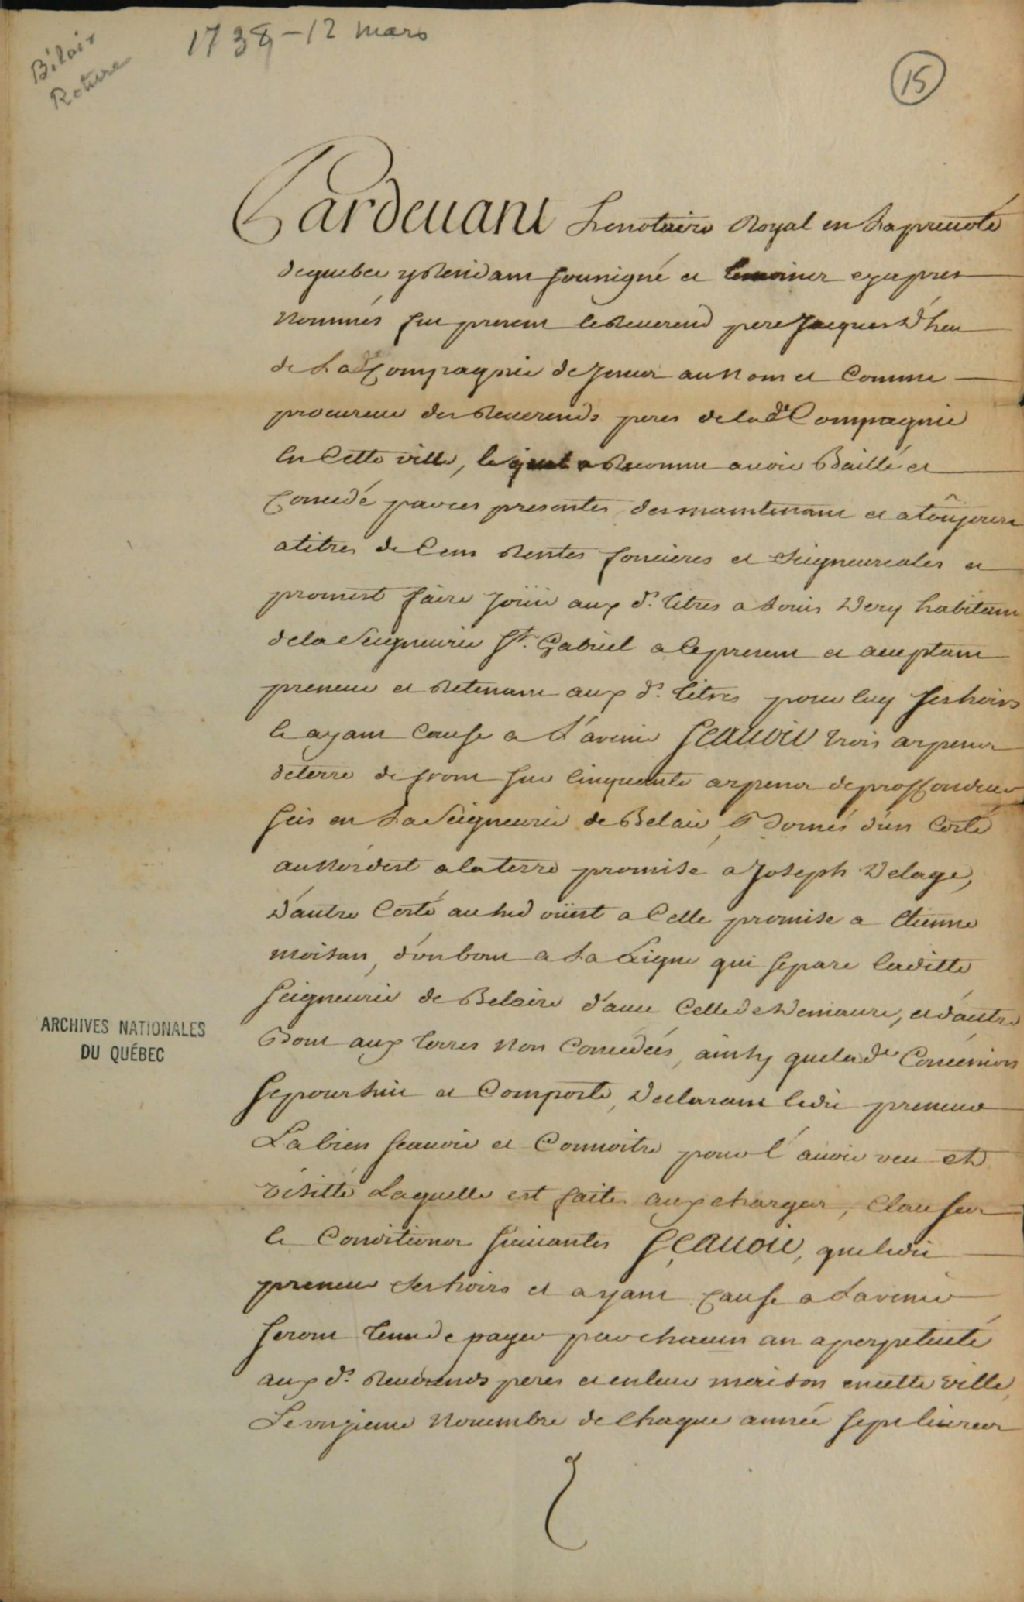 Bélair
Roture
1738 - 12 mars
15
Pardevant Le notaire Royal en La prevoté
de quebec y Residant soussigné et temoins cy apres
nommés fut present le Reverend pere Jacques D'heu
de La de Compagnie de Jesus au nom et Comme
procureur des Reverends peres de la de Compagnie
En Cette ville, lequel a Reconnu avoir Baillé et
Concedé par ces presentes des maintenant et a toûjours
a titres de Cens Rentes foncieres et Seigneuriales et
promest faire Joüir aux ds. titres a Louis Dery habitant
de la Seigneurie St. Gabriel a Ce present et acceptant
preneur et Retenant aux ds. titres pour luy ses hoirs
et ayant Cause a L'avenir SCAVOIR trois arpens
de terre de front sur Cinquante arpens de proffondeur
scis en La Seigneurie de Belair, Bornés d'un Costé
au Nordest a la terre promise a Joseph Delage,
D'autre Costé au Sud oüest a Celle promise a Etienne
moisan, d'un bout a La Ligne qui separe laditte
Seigneurie de Belaire d'avec Celle de Demaure, et d'autre
Bout aux terres Non Concedées, ainsy que la de Concession
se poursuit et Comporte, Declarant ledit preneur
La bien scavoir et Connoitre pour l'avoir veu et
visitté Laquelle est faite aux charges, Clauses
et Conditions suivantes SCAVOIR, que ledit
preneur ses hoirs et ayant Cause a L'avenir
seront tenu de payer par chacun an a perpetuité
aux ds. Reverends peres et en leur maison en cette ville,
Le onzieme Novembre de Chaque année sept livres
ARCHIVES NATIONALES
DU QUÉBEC